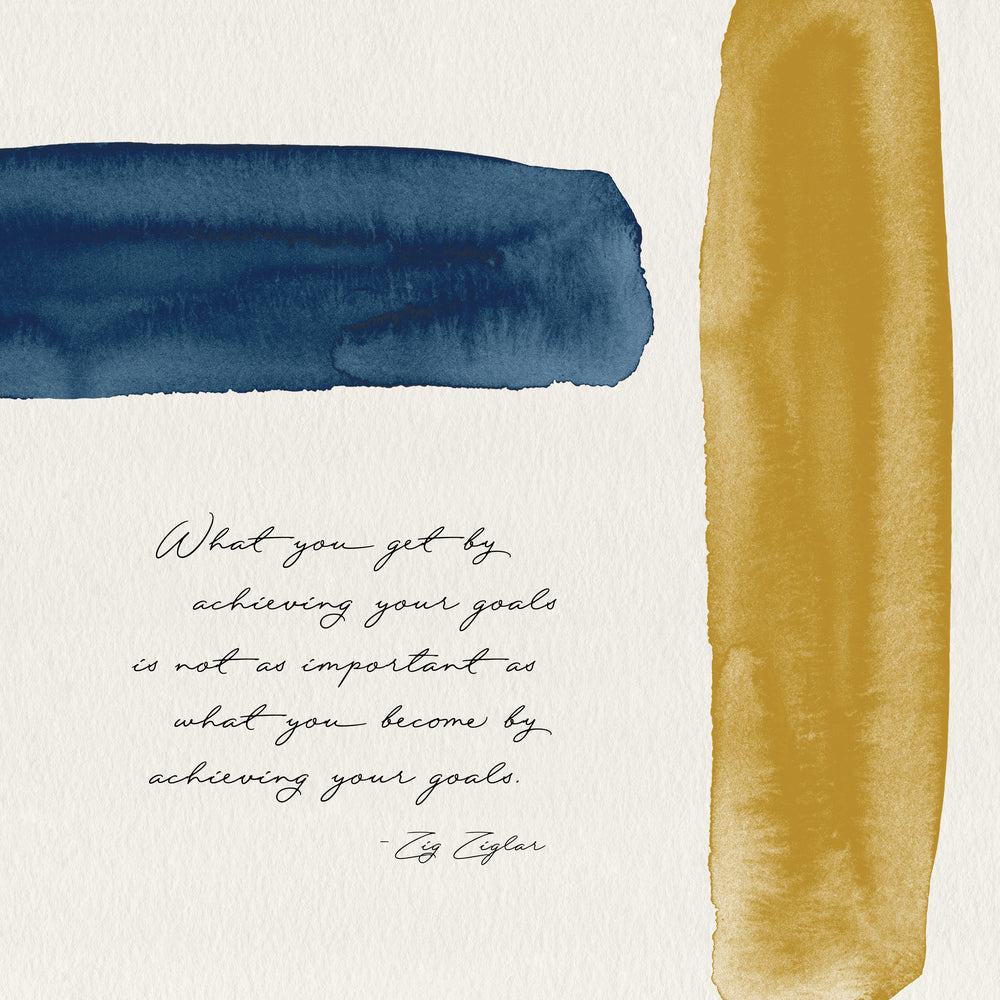 What you get by
achieving your goals
is not as important as
what you become by
achieving your goals.
- Zig Ziglar